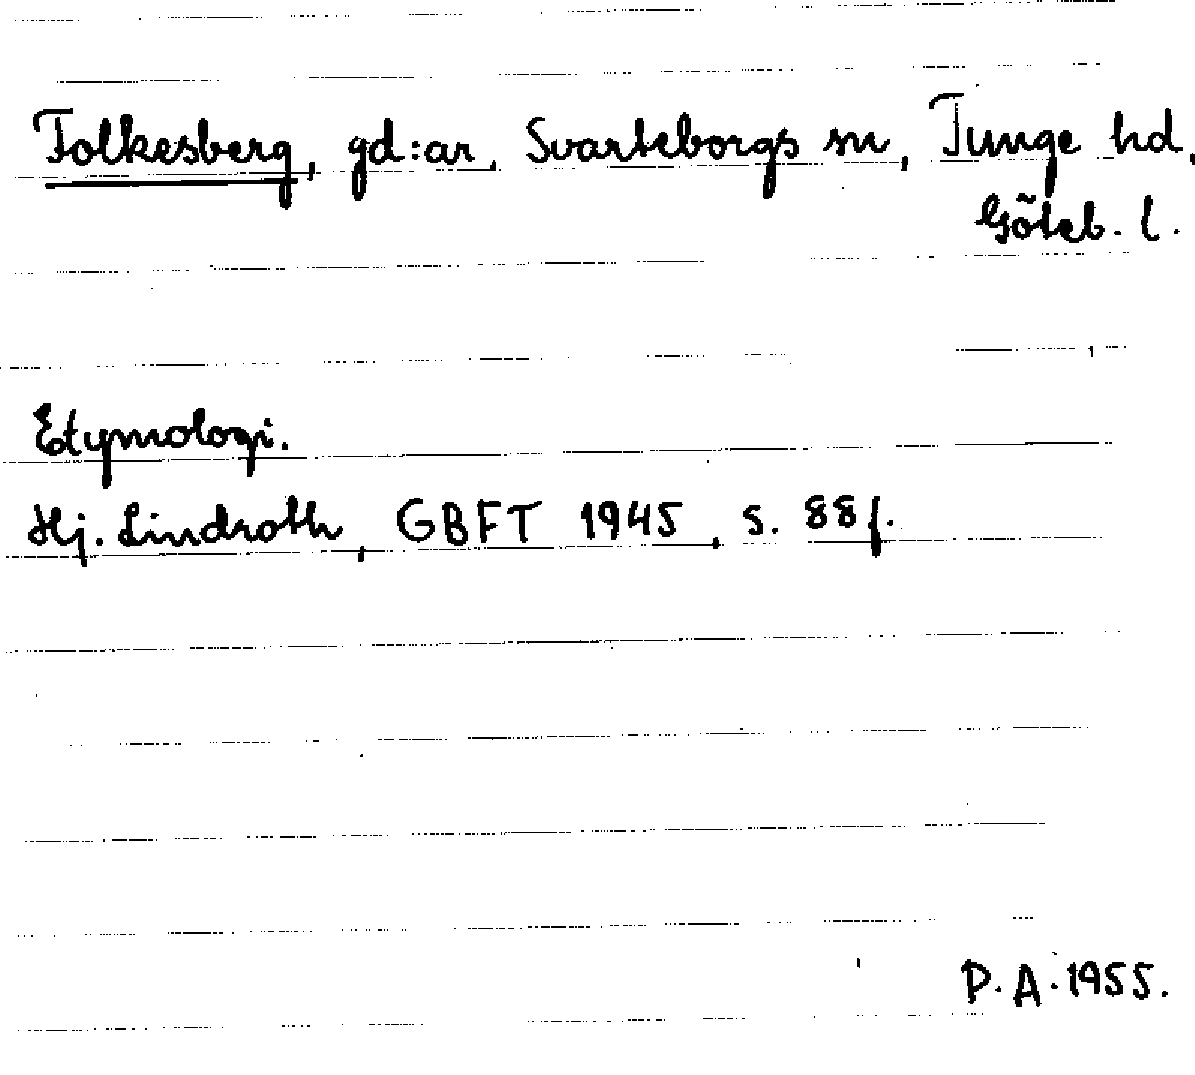 Folkesberg, gd:ar, Svarteborgs sn, Tunge hd,
Göteb. l.
Etymologi.
Hj. Lindroth, GBFT 1945, s. 88f.
P.A. 1955.